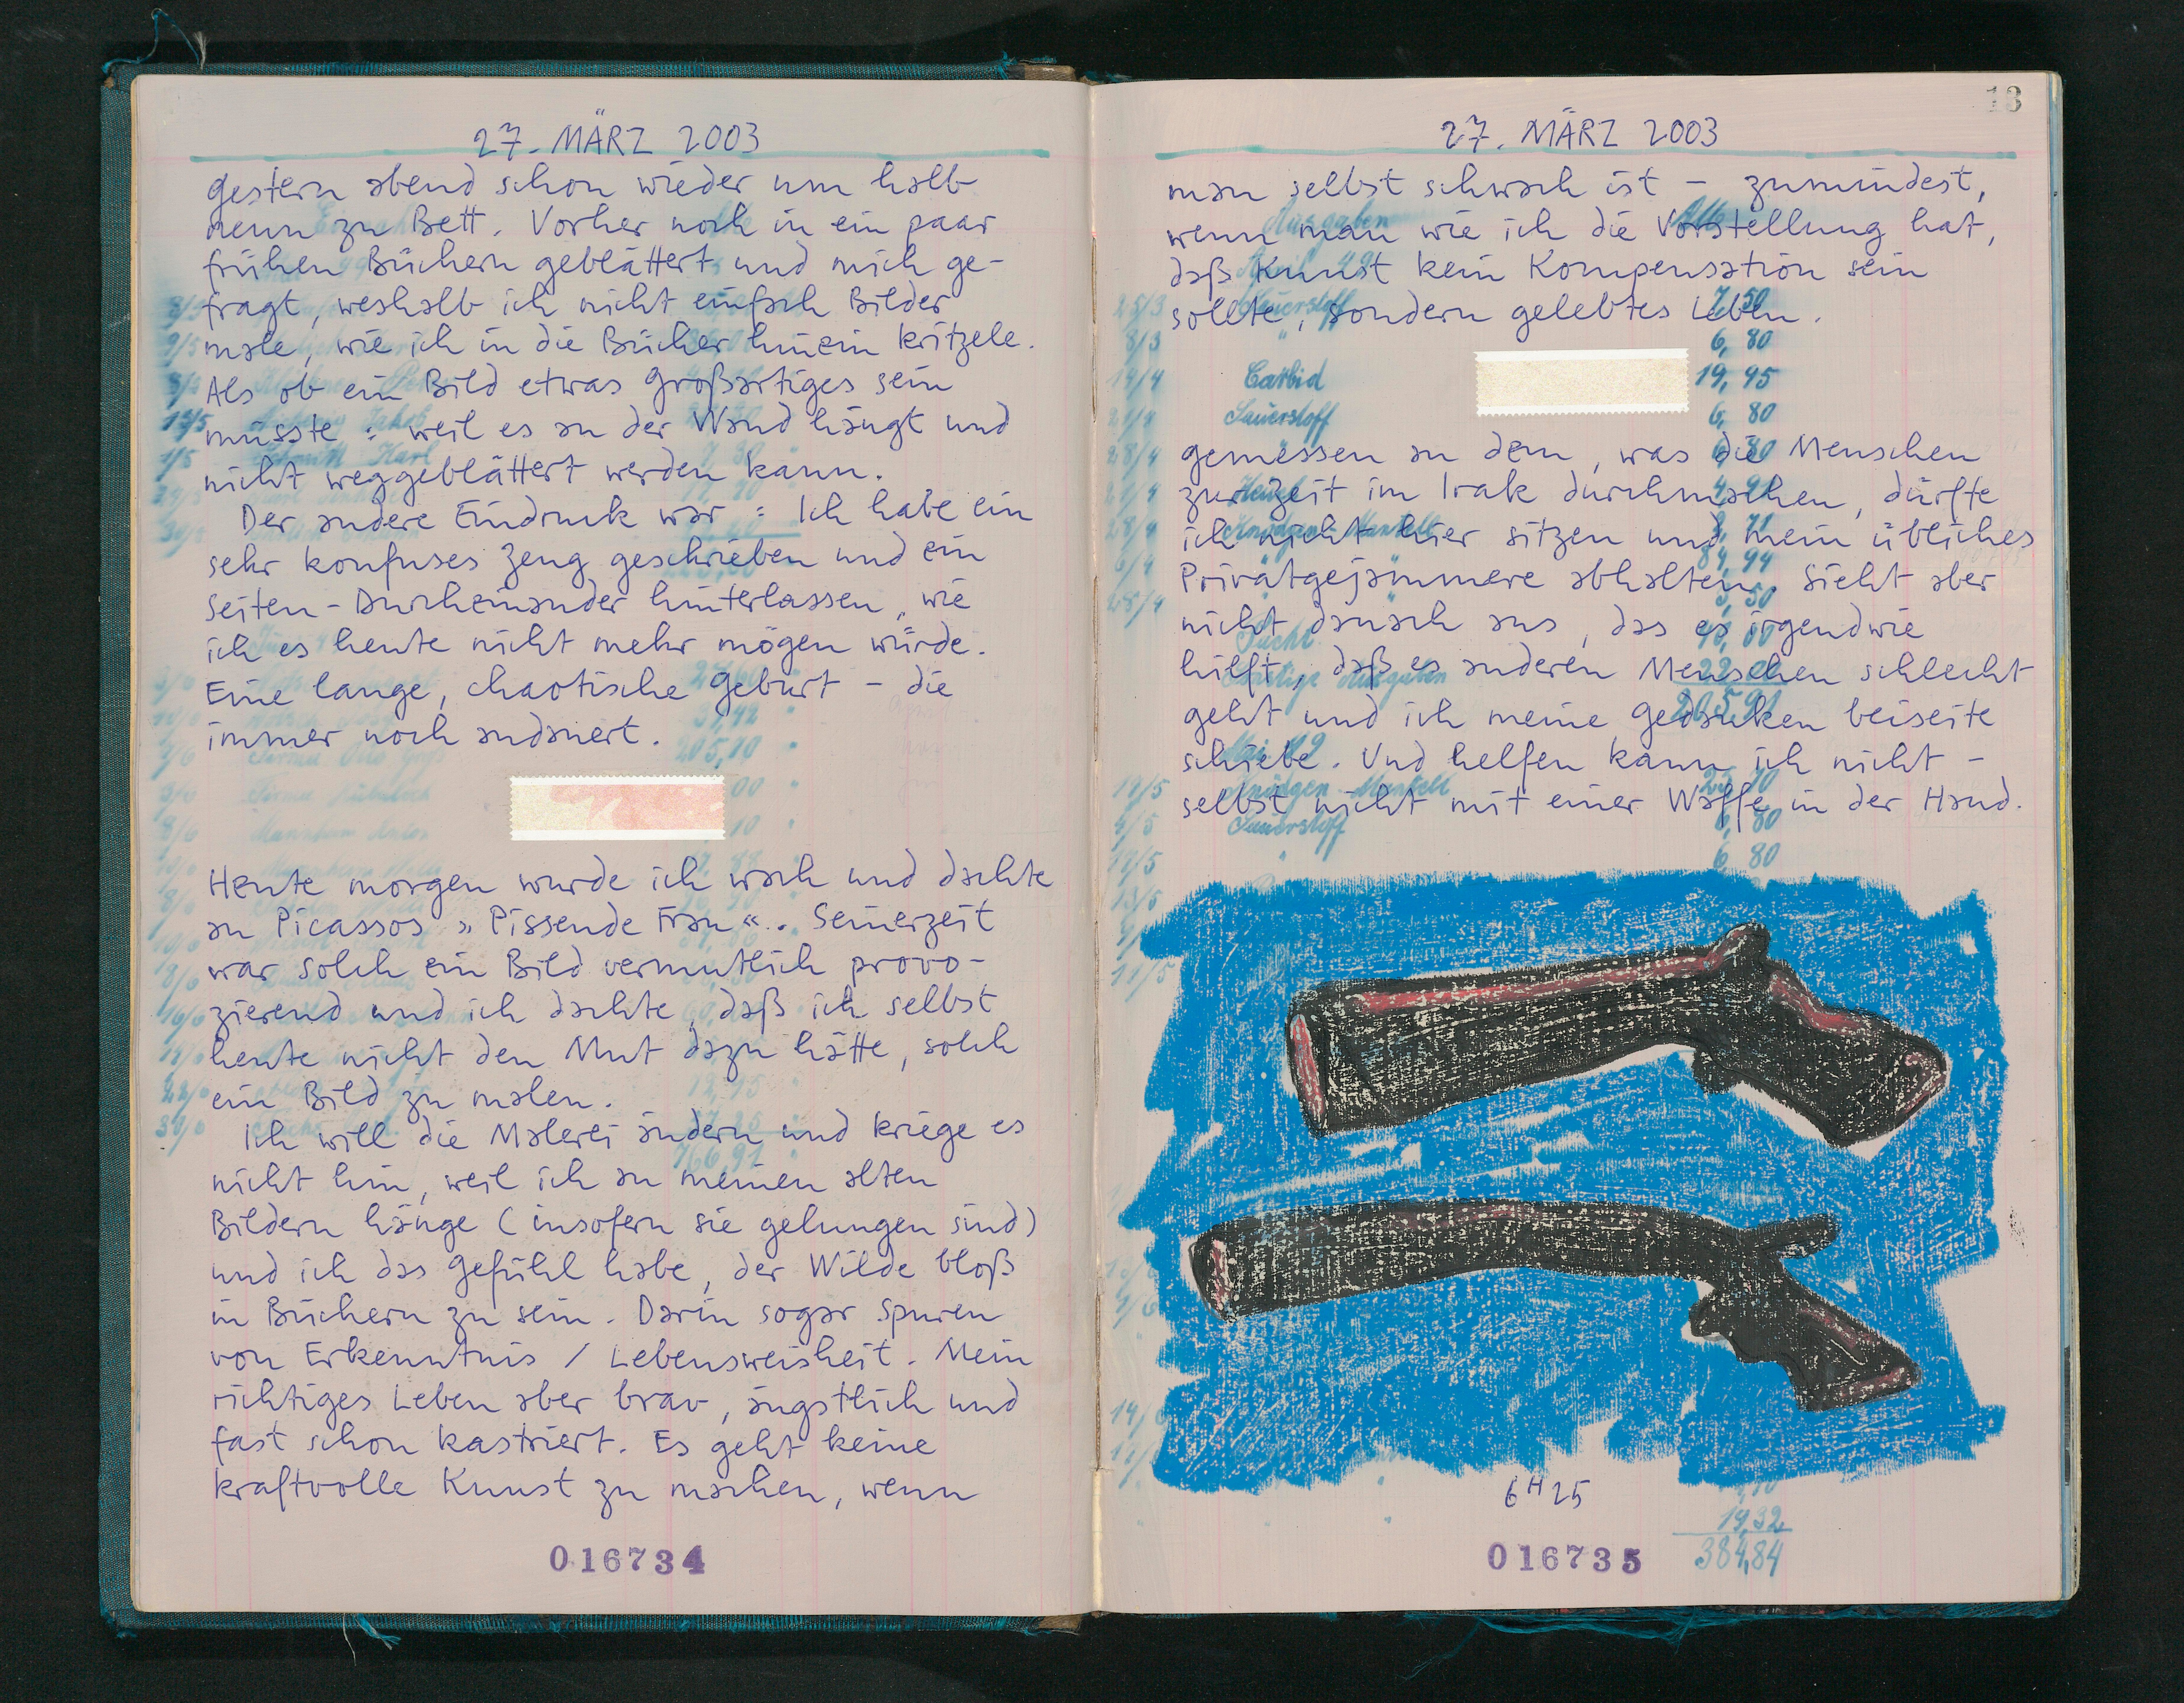 27. MÄRZ 2003
gestern abend schon wieder um halb
neun zu Bett. Vorher noch in ein paar
frühen Büchern geblättert und mich ge-
fragt, weshalb ich nicht einfach Bilder
male, wie ich in die Bücher hinein kritzele.
Als ob ein Bild etwas Großartiges sein
müsste: weil es an der Wand hängt und
nicht weggeblättert werden kann.
Der andere Eindruck war: Ich habe ein
sehr konfuses Zeug geschrieben und ein
Seiten-Durcheinander hinterlassen, wie
ich es heute nicht mehr mögen würde.
Eine lange, chaotische Geburt – die
immer noch andauert.
Heute morgen wurde ich wach und dachte
an Picassos »Pissende Frau«. Seinerzeit
war solch ein Bild vermutlich provo-
zierend und ich dachte, daß ich selbst
heute nicht den Mut dazu hätte, solch
ein Bild zu malen.
Ich will die Malerei ändern und kriege es
nicht hin, weil ich an meinen alten
Bildern hänge (insofern sie gelungen sind)
und ich das Gefühl habe, der Wilde bloß
in Büchern zu sein. Darin sogar Spuren
von Erkenntnis / Lebensweisheit. Mein
richtiges Leben aber brav, ängstlich und
fast schon kastriert. Es geht keine
kraftvolle Kunst zu machen, wenn
016734
13
27. MÄRZ 2003
man selbst schwach ist – zumindest,
wenn man wie ich die Vorstellung hat,
daß Kunst kein Kompensation sein
sollte, sondern gelebtes Leben.
7,50
6,80
14/4 Carbid 19,45
21/4 Sauerstoff 6,80
gemessen an dem, was die Menschen
zurzeit im Irak durchmachen, dürfte
ich nicht hier sitzen und mein übliches
Privatgejammere abhalten. Sieht aber
nicht danach aus, das es irgendwie
hilft, daß es anderen Menschen schlecht
geht und ich meine Gedanken beiseite
schiebe. Und helfen kann ich nicht –
selbst nicht mit einer Waffe in der Hand.
Sauerstoff
6,80
6H25
19,32
384,84
016735